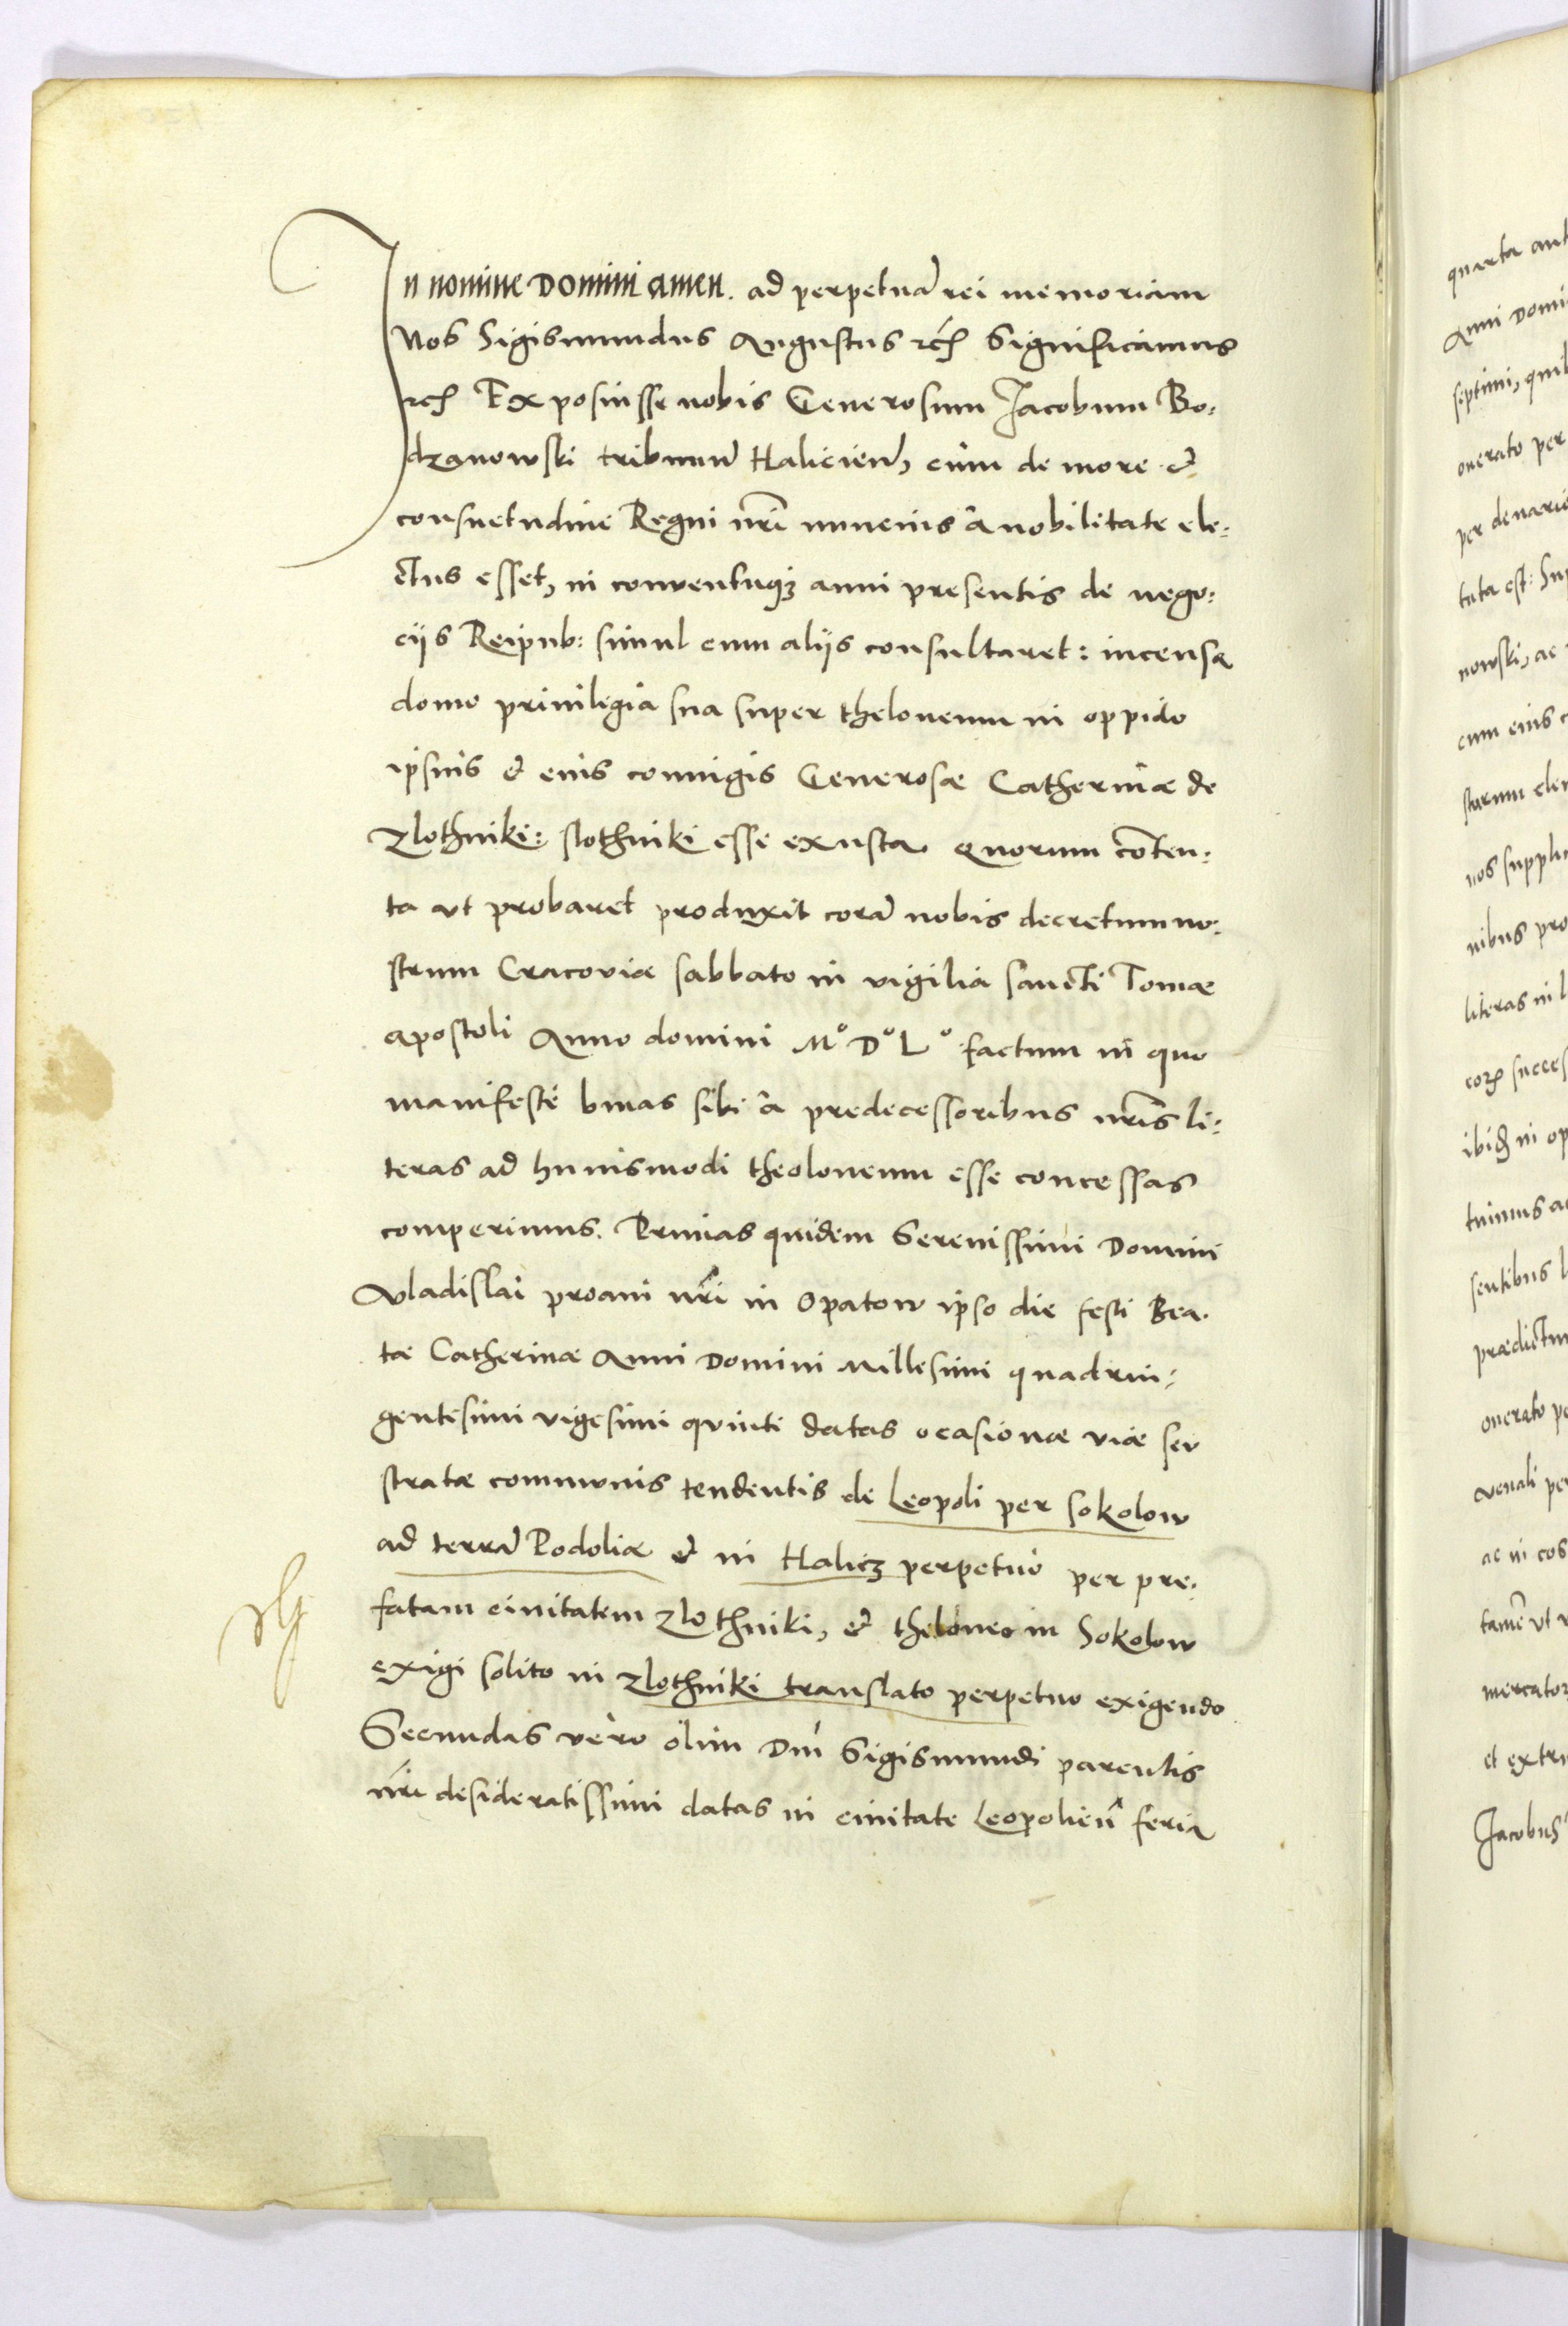 In nomine Domini amen. ad perpetuā rei memoriam
Nos Sigismundus Augustus etc̃ Significamus
etc̃ Exposuisse nobis Generosum Jacobum Bo:
dzanowski tribunū Halicień, cùm de more et
consuetudine Regni nr̃i nuncius à nobilitate ele:
ctus esset, in conventuq3 anni presentis de nego:
cijs Reipub: simul cum alijs consultaret: incensa
domo priuilegia sua super theloneum in oppido
ipsius et eius coniugis Generosæ Catherinæ de
Zlothniki: slothniki esse exusta. Quorum cōten:
ta vt probaret produxit corā nobis decretum no:
strum Cracoviæ sabbato in vigilia sancti Tomæ
apostoli Anno domini M° D° L° factum in quo
manifestè binas sibi à predecessoribus nr̃is li:
teras ad huiusmodi theoloneum esse concessas
comperimus. Primas quidem Serenissimi Domini
Vladislai proaui nr̃i in Opatow ipso die festi Bea.
tæ Catherinæ Anni Domini Millesimi quadrin:
gentesimi vigesimi quinti datas ocasionæ viæ seu
stratæ communis tendentis de Leopoli per Sokolow
ad terrā Podoliæ et in Halicz perpetuò per pre.
fatam ciuitatem Zlothniki, et theloneo in Sokolow
exigi solito in Zlothniki translato perpetuo exigendo
Secundas vèro olim Dnī Sigismundi parentis
nr̃i desideratissimi datas in ciuitate Leopolień feria
quarta
Anni Domi
septimi,
onerato per
per denario
tuta est:
nowski, ac
cum eius
nos
nibus pro
literas in
ibid̄ in op
tuimus
sentibus
prædictu
onerato
Venali
ac in
tamē vt
mercator
et extr
Jacobus